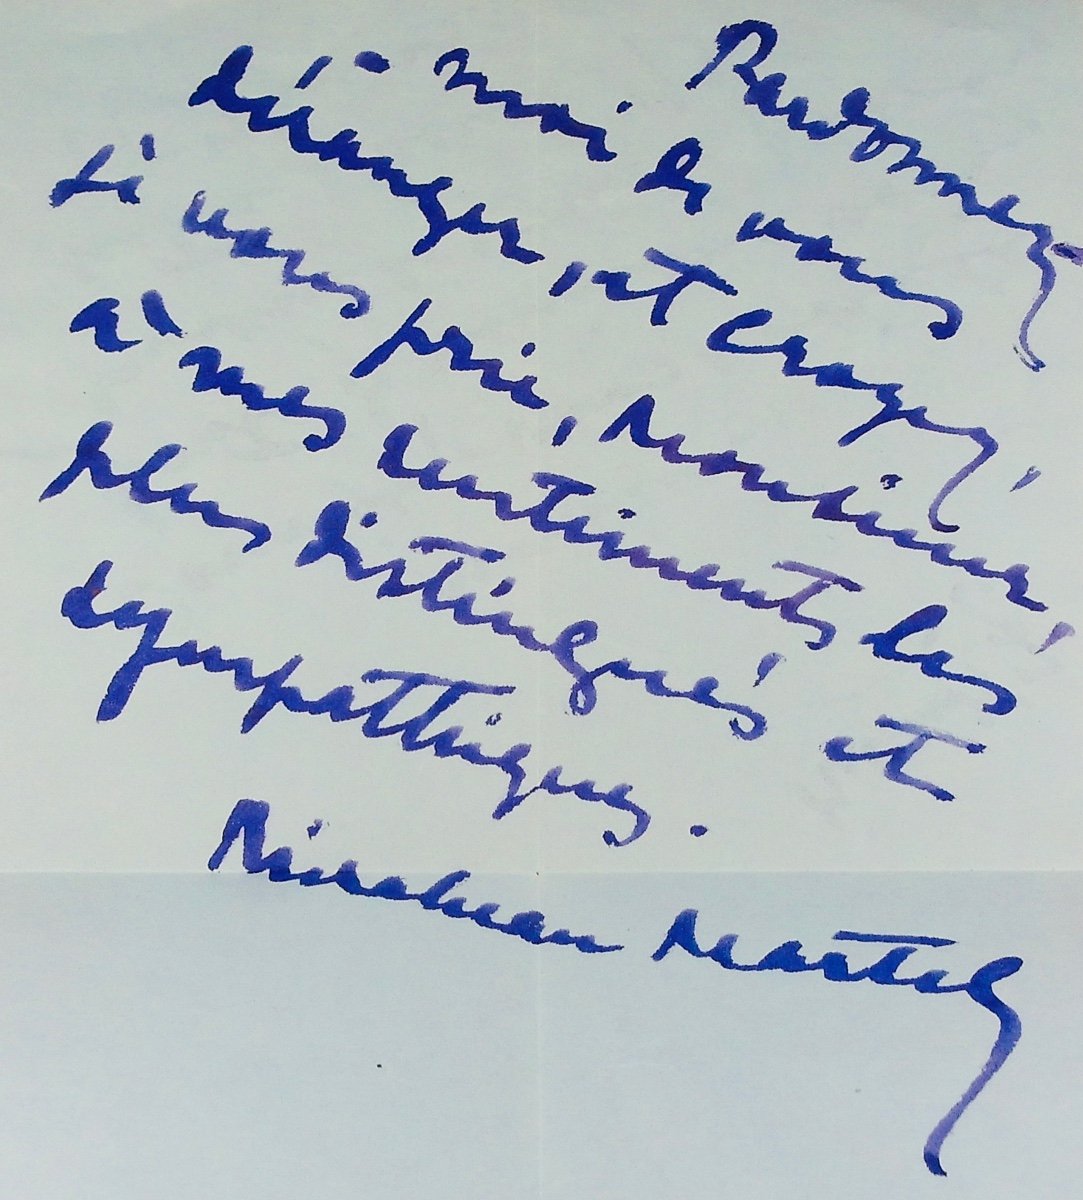 Pardonnez
-moi de vous
déranger, et croyez,
je vous prie, Monsieur,
à mes sentiments les
plus distingués et
sympathiques.
Mirabeau Martel